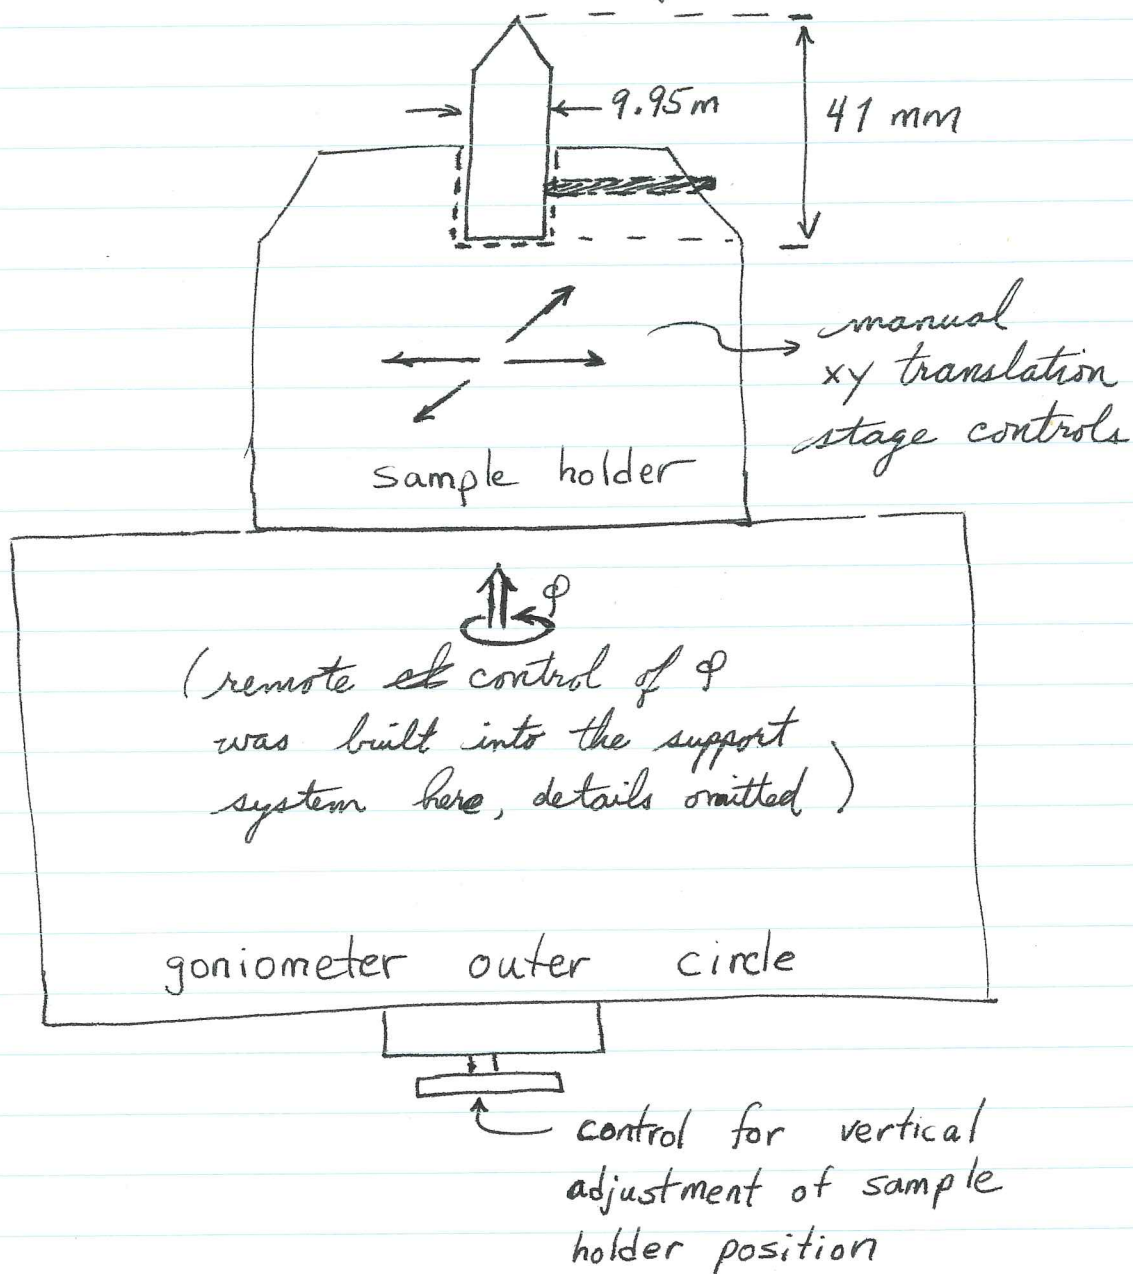 9.95m
41 mm
manual
xy translation
stage controls
sample holder
φ
(remote control of φ
was built into the support
system here, details omitted)
goniometer outer circle
control for vertical
adjustment of sample
holder position